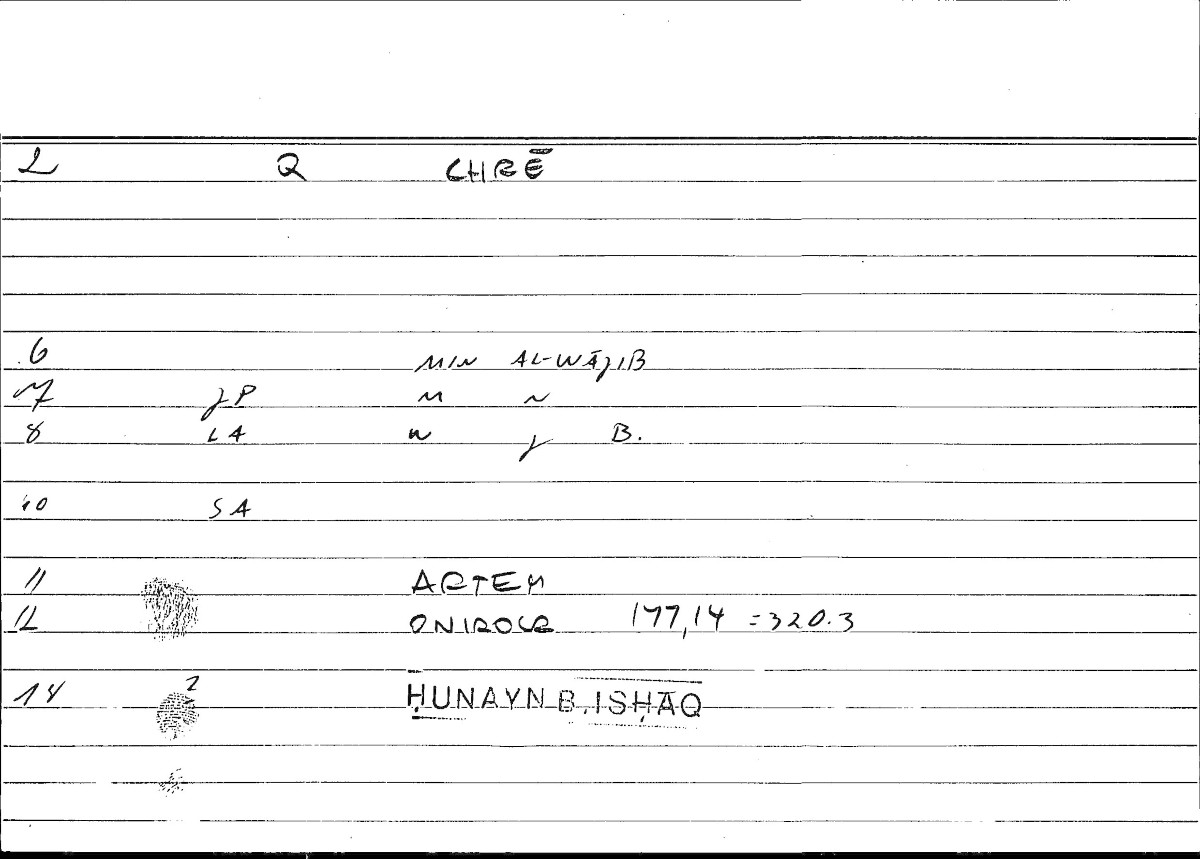 2 Q CHRĒ
6 MIN AL-WĀJIB
7 JP M N
8 LA W J B.
10 SA
11 ARTEM
12 ONIROCR 177,14 = 320.3
14 2 ḤUNAYN B. ISḤĀQ